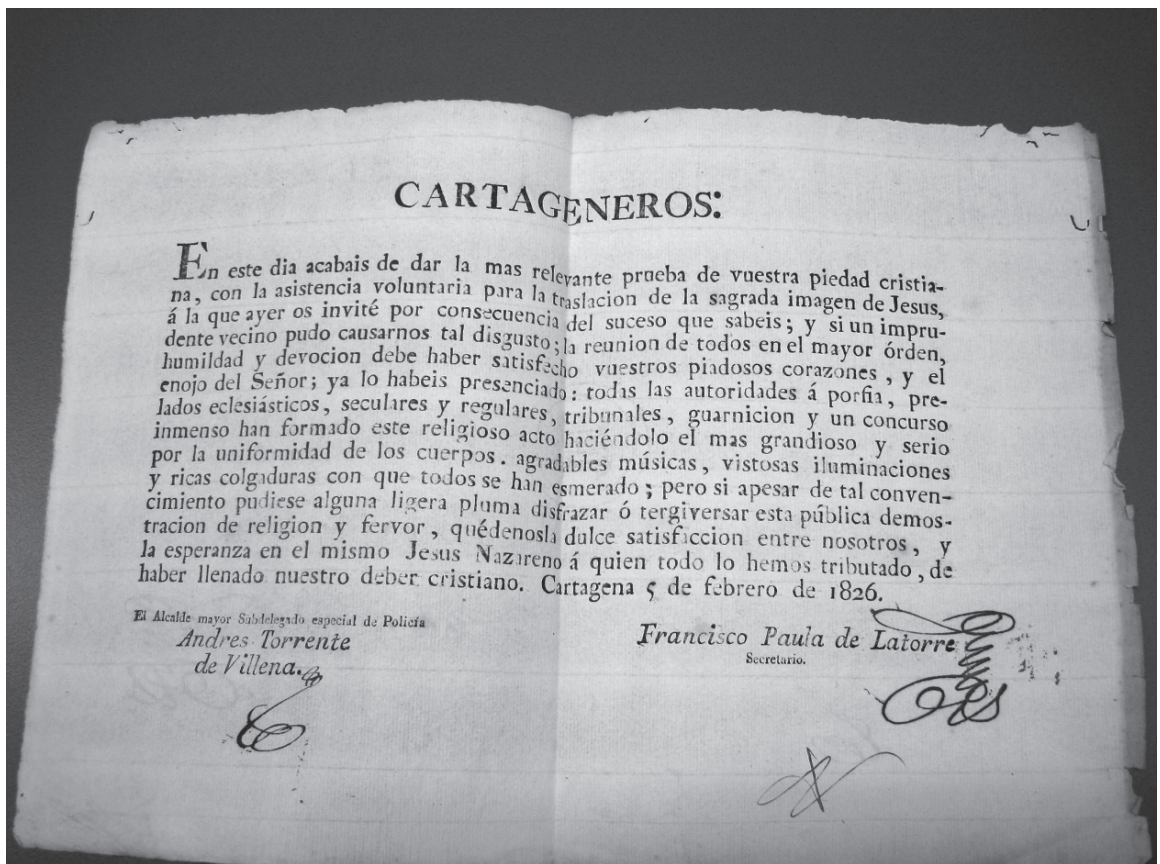 CARTAGENEROS:
En este dia acabais de dar la mas relevante prueba de vuestra piedad cristia-
na, con la asistencia voluntaria para la traslacion de la sagrada imagen de Jesus,
á la que ayer os invité por consecuencia del suceso que sabeis; y si un impru-
dente vecino pudo causarnos tal disgusto; la reunion de todos en el mayor órden,
humildad y devocion debe haber satisfecho vuestros piadosos corazones, y el
enojo del Señor; ya lo habeis presenciado: todas las autoridades á porfia, pre-
lados eclesiásticos, seculares y regulares, tribunales, guarnicion y un concurso
inmenso han formado este religioso acto haciéndolo el mas grandioso y serio
por la uniformidad de los cuerpos. agradables músicas, vistosas iluminaciones
y ricas colgaduras con que todos se han esmerado; pero si apesar de tal conven-
cimiento pudiese alguna ligera pluma disfrazar ó tergiversar esta pública demos-
tracion de religion y fervor, quédenosla dulce satisfaccion entre nosotros, y
la esperanza en el mismo Jesus Nazareno á quien todo lo hemos tributado, de
haber llenado nuestro deber cristiano. Cartagena 5 de febrero de 1826.
El Alcalde mayor Subdelegado especial de Policía
Andres Torrente
de Villena.
Francisco Paula de Latorre
Secretario.